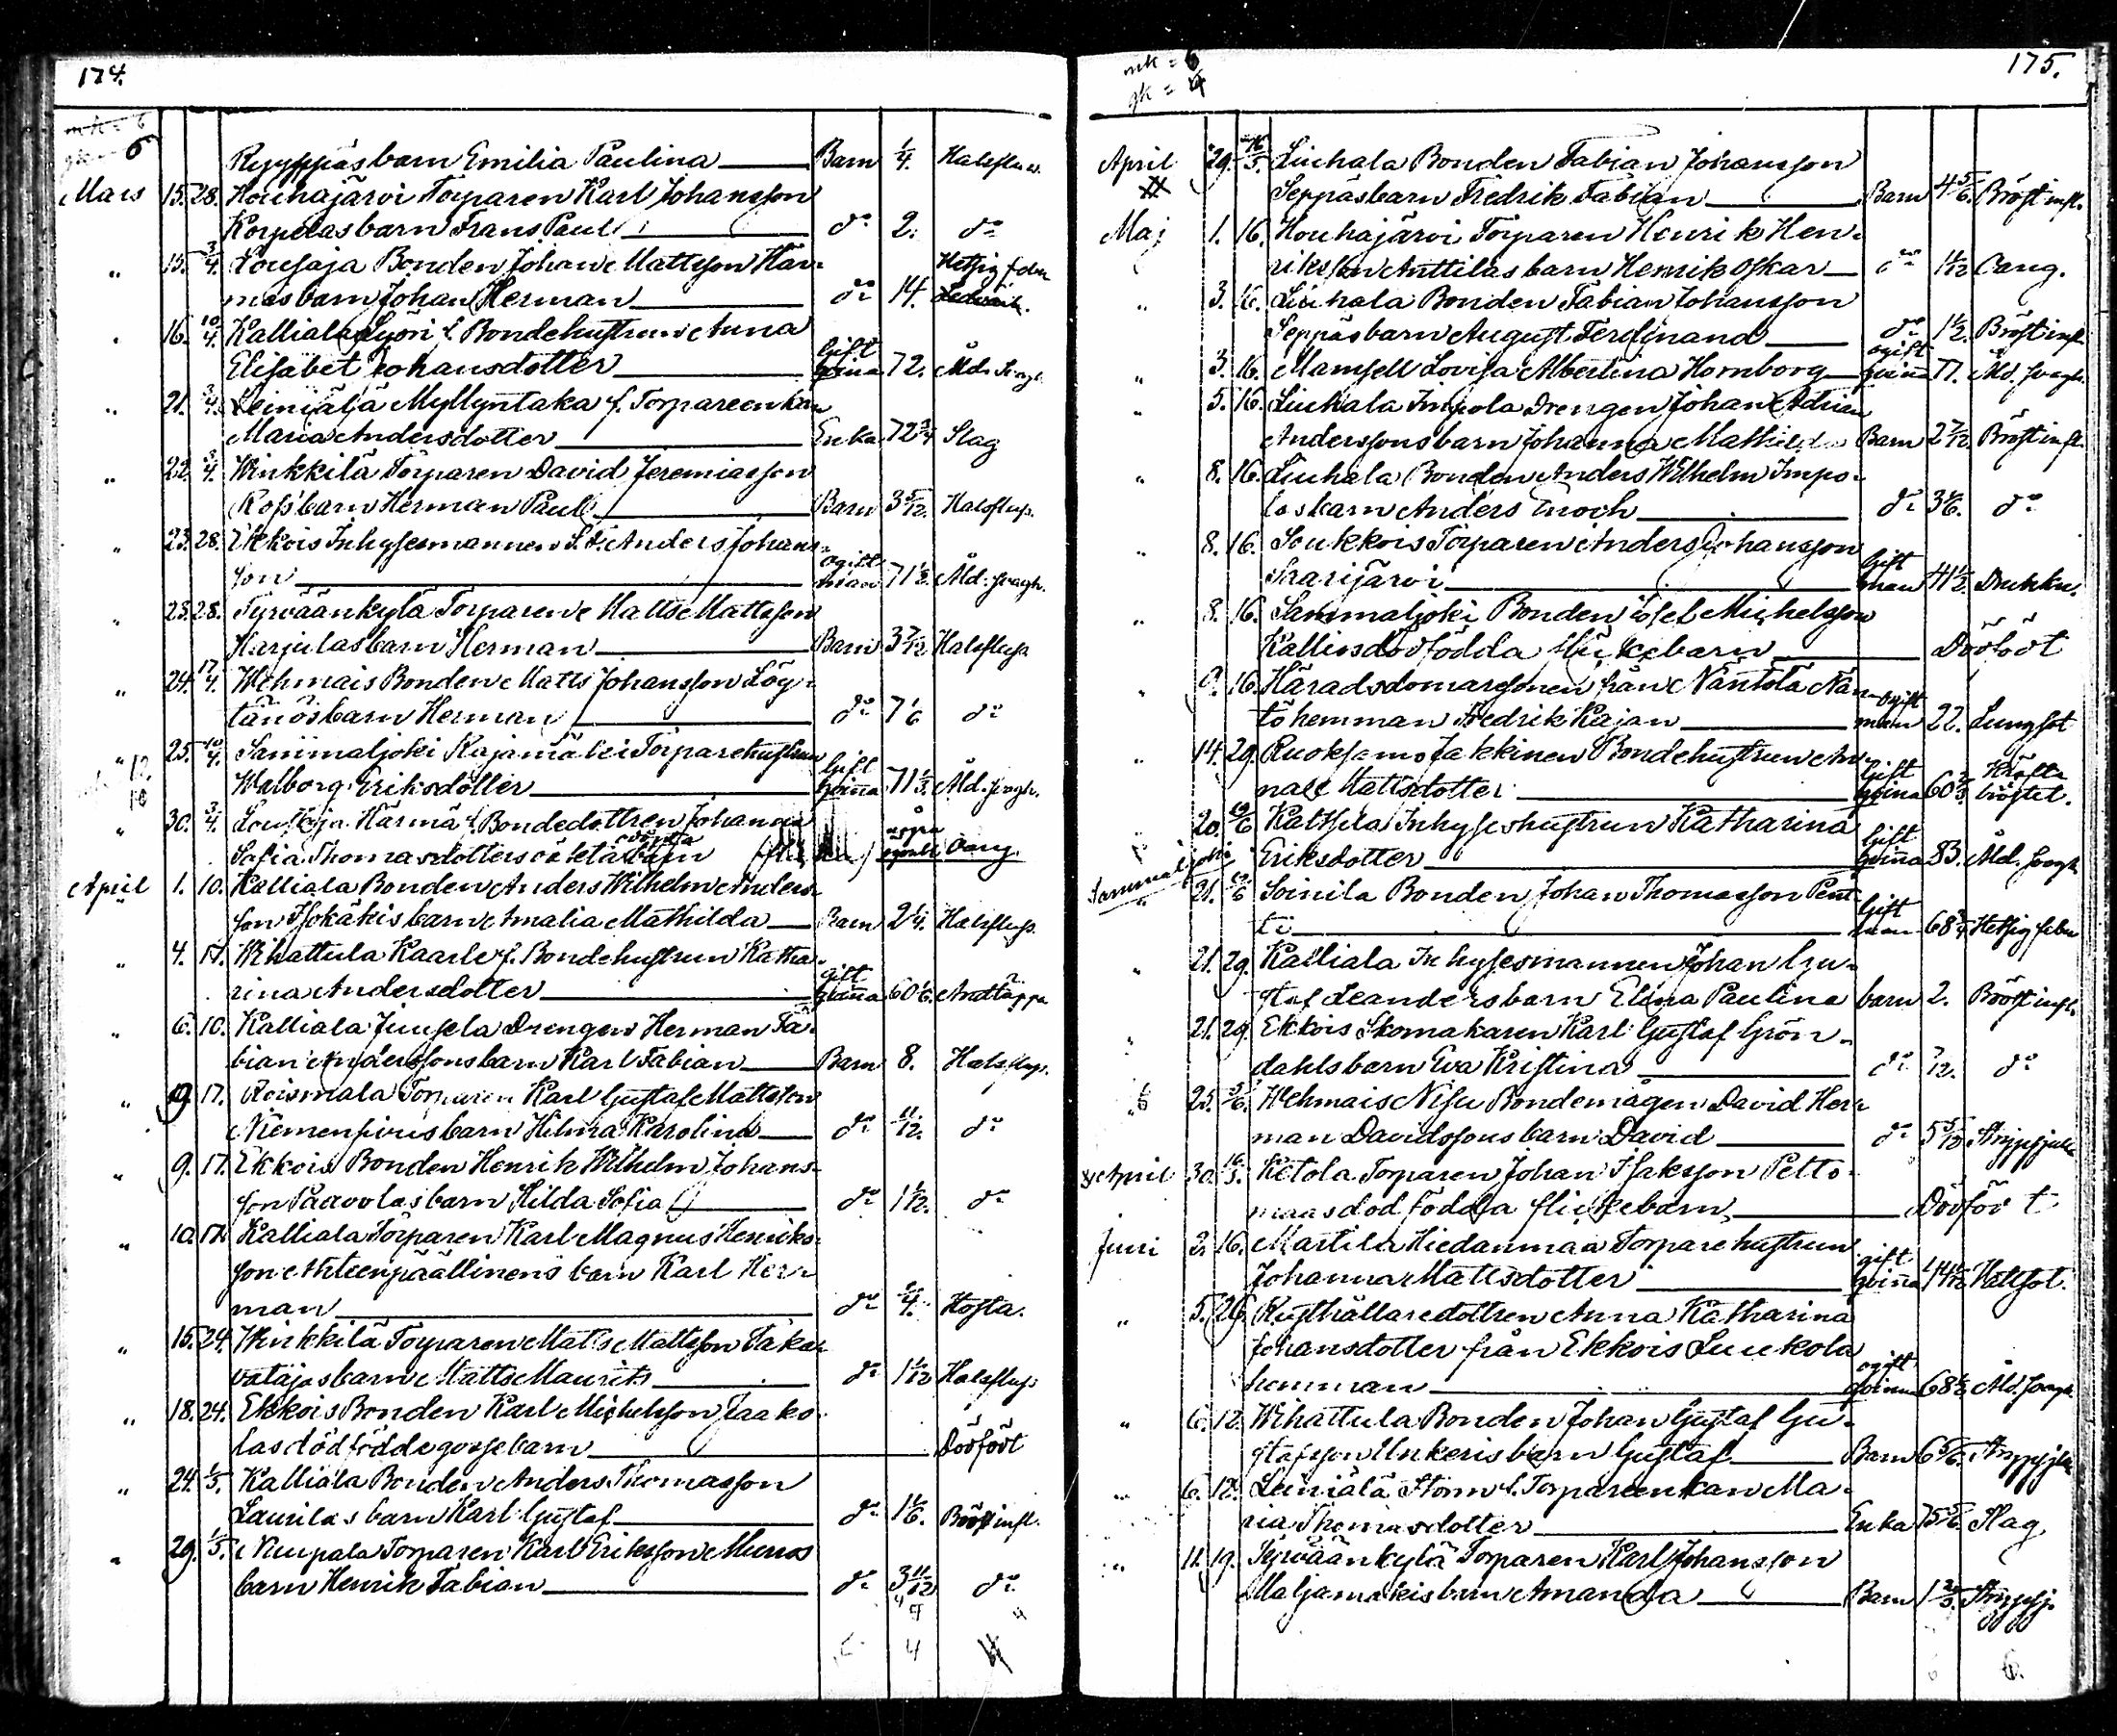 174.
Ryyppäs barn Emilia Paulina Barn 1/4. Halsfluss.
Mars 15. 28. Houhajärvi Torparen Karl Johansson
Korpelas barn Frans Paul do 2. do
" 15. 3/4. Lousaja Bonden Johan Mattsson Här-
mäs barn Johan Herman do 14. Hetsig feber
" 16. 10/4. Kalliala Lyöri f. Bondehustrun Anna
Elisabet Johansdotter Gift qvinna 72. Åld. Svagh.
" 21. 3/4. Leiniälä Myllyntaka f. Torpareenkan
Maria Andersdotter Enka 72 3/4 Slag
" 22. 3/4. Winkkilä Torparen David Jeremiasson
Ross barn Herman Paul Barn 3 5/12. Halsflus.
" 23. 28. Ekkois Inhysesmannen S.A. Anders Johans-
son ogift man 71 1/2. Åld. svagh.
" 23. 28. Tyrväänkylä Torparen Matts Mattsson
Harjulas barn Herman Barn 3 7/12 Halsfluss
" 24. 17/4. Wehmais Bonden Matts Johansson Löy-
tänös barn Herman do 7 1/6 do
" 25. 10/4. Sammaljoki Rajamäki Torparehustrun
Walborg Eriksdotter Gift qvinna 71 1/3. Åld. svagh.
" 30. 3/4. Louhoja Härmä f. Bondedottren Johanna
Sofia Thomasdotters oäkta odöpta barn Oang.
April 1. 10. Kalliala Bonden Anders Wilhelm Anders-
son Isokäkis barn Amalia Mathilda Barn 2 1/4. Halsfluss.
" 4. 17. Wihattula Kaarle f. Bondehustrun Katha-
rina Andersdotter gift qvinna 60 1/6. Andtäppa
" 6. 10. Kalliala Juusela Drengen Herman Fa-
bian Anderssons barn Karl Fabian Barn 8. Halsflus.
" 9. 17. Roismala Torparen Karl Gustaf Mattsson
Niemenpirus barn Hilma Karolina do 11/12. do
" 9. 17. Ekkois Bonden Henrik Wilhelm Johans-
son Paavolas barn Hilda Sofia do 1 1/12. do
" 10. 17. Kalliala Torparen Karl Magnus Henriks-
son Ahteenpäällinens barn Karl Her-
man do 4. Hosta.
" 15. 24. Winkkilä Torparen Matts Mattsson Taka-
vatajas barn Matts Maurits do 1 1/12 Halsfluss
" 18. 24. Ekkois Bonden Karl Michelsson Jaako-
las dödfödde gossebarn Dödfödt
" 24. 1/5. Kalliala Bonden Anders Thomasson
Laurilas barn Karl Gustaf do 1 1/6. Bröstinfl.
" 29. 1/5. Nuupala Torparen Karl Eriksson Murros
barn Henrik Fabian do 3 11/12 do
175.
April 29. 16/5. Liuhala Bonden Fabian Johansson
Seppäs barn Fredrik Fabian Barn 4 5/6. Bröstinfl.
Maj 1. 16. Houhajärvi Torparen Henrik Hen-
riksson Anttilas barn Henrik Oskar do 1 1/12 Oang.
" 3. 16. Liuhala Bonden Fabian Johansson
Seppäs barn August Ferdinand do 1 1/2. Bröstinfl.
" 3. 16. Mamsell Lovisa Albertina Hornborg ogift qvinna 77. Åld. svagh.
" 5. 16. Liuhala Impola Drengen Johan Adrian
Anderssons barn Johanna Mathilda Barn 2 7/12. Bröstinfl.
" 8. 16. Liuhala Bonden Anders Wilhelm Impo-
las barn Anders Enoch do 3 1/6. do
" 8. 16. Soukkois Torparen Anders Johansson
Saarijärvi Gift man 41 1/2. Drukkn.
" 8. 16. Sammaljoki Bonden Josef Michelsson
Kallios dödfödda flickebarn Dödfödt
" 9. 16. Häradsdomaresonen från Näntölä Nän-
tö hemman Fredrik Kajan ogift man 22. Lungsot
" 14. 29. Ruoksamo Jakkinen Bondehustrun An-
na Mattsdotter Gift qvinna 60 2/3 Kräfta bröstet.
" 20. 19/6 Kaltsila Inhyseshustrun Katharina
Eriksdotter Gift qvinna 83. Åld. svagh.
Sammaljoki
" 21. 19/6 Soinila Bonden Johan Thomasson Pent-
ti Gift man 68 3/4 Hetsig feber
" 21. 29. Kalliala Inhysesmannen Johan Gu-
staf Leanders barn Elina Paulina barn 2. Bröstinfl.
" 21. 29. Ekkois Skomakaren Karl Gustaf Grön-
dahls barn Eva Kristina do 7/12. do
" 25. Wehmais Nisu Bondemågen David Her-
man Davidssons barn David do 5 5/12 Strypsjuka
April 30. 16/5. Ketola Torparen Johan Isaksson Pelto-
maas dödfödda flickebarn Dödfödt
Juni 2. 16. Marttila Hiedanmaa Torparehustrun
Johanna Mattsdotter gift qvinna Wattsot.
" 5. 26. Rusthållaredottren Anna Katharina
Johansdotter från Ekkois Luukola
hemman ogift qvinna 68 1/2 Åld. svagh.
" 6. 12. Wihattula Bonden Johan Gustaf Gu-
stafsson Unkeris barn Gustaf Barn 6 5/6. Strypsjuka
" 6. 12. Leiniälä Storm f. Torpareenkan Ma-
ria Thomasdotter Enka 75 5/6. Slag
" 11. 19. Tyrväänkylä Torparen Karl Johansson
Maljamäkis barn Amanda Barn 1 2/3. Strypsj.